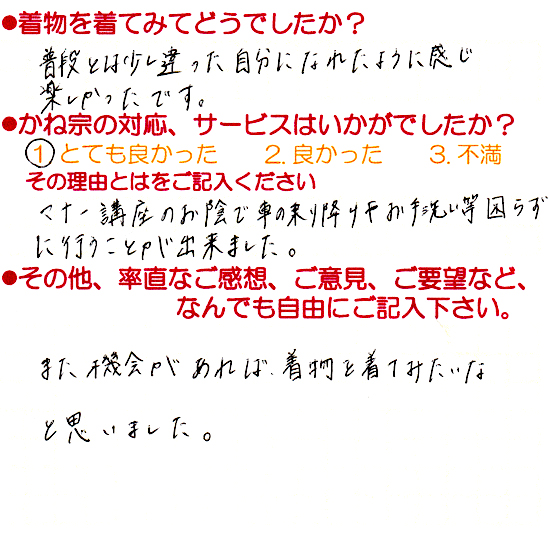 ●着物を着てみてどうでしたか？
普段とは少し違った自分になれたように感じ
楽しかったです。
●かね宗の対応、サービスはいかがでしたか？
①とても良かった 2.良かった 3.不満
その理由とはをご記入ください
マナー講座のお陰で車の乗り降りやお手洗い等困らず
に行うことが出来ました。
●その他、率直なご感想、ご意見、ご要望など、
なんでも自由にご記入下さい。
また機会があれば、着物を着てみたいな
と思いました。